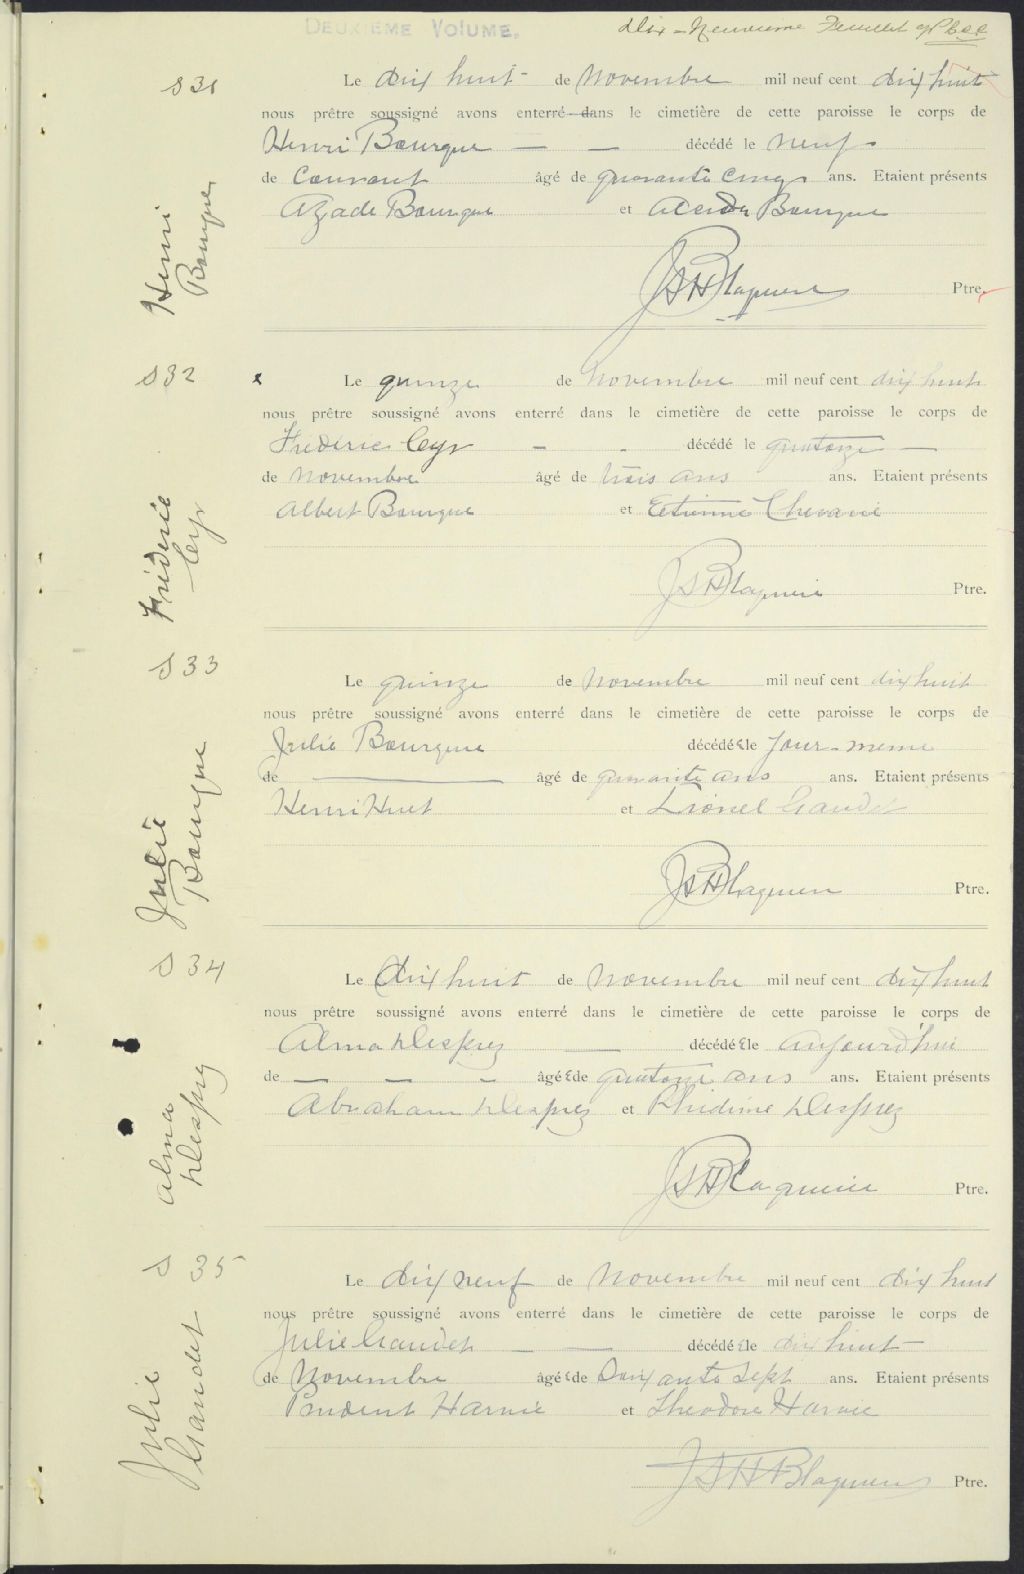 DEUXIÈME VOLUME.
Dix-Neuvième Feuillet
S 31
Henri Bourque
Le dix huit de Novembre mil neuf cent dix huit
nous prêtre soussigné avons enterré dans le cimetière de cette paroisse le corps de
Henri Bourque — — décédé le neuf
de Courant âgé de quarante cinq ans. Etaient présents
Azade Bourque et Alcide Bourque
JSHBlaquiere Ptre.
S 32
Fréderic Cyr
x Le quinze de Novembre mil neuf cent dix huit
nous prêtre soussigné avons enterré dans le cimetière de cette paroisse le corps de
Fréderic Cyr - - décédé le quatorze —
de Novembre âgé de trois ans ans. Etaient présents
Albert Bourque et Etienne Chevarie
JSHBlaquiere Ptre.
S 33
Julie Bourque
Le quinze de Novembre mil neuf cent dix huit
nous prêtre soussigné avons enterré dans le cimetière de cette paroisse le corps de
Julie Bourque décédée le Jour-meme
de — âgé de quarante ans ans. Etaient présents
Henri Huet et Lionel Gaudet
JSHBlaquiere Ptre.
S 34
Alma Desprez
Le Dix huit de Novembre mil neuf cent dix huit
nous prêtre soussigné avons enterré dans le cimetière de cette paroisse le corps de
Alma Desprez — décédée le aujourd'hui
de — — - âgée de quatorze ans ans. Etaient présents
Abraham Desprez et Desprez
JSHBlaquiere Ptre.
S 35
Julie Gaudet
Le dix neuf de Novembre mil neuf cent dix huit
nous prêtre soussigné avons enterré dans le cimetière de cette paroisse le corps de
Julie Gaudet — — décédée le dix huit
de Novembre âgée de Soixante Sept ans. Etaient présents
Prudent Harvie et Theodore Harvie
JSHBlaquiere Ptre.